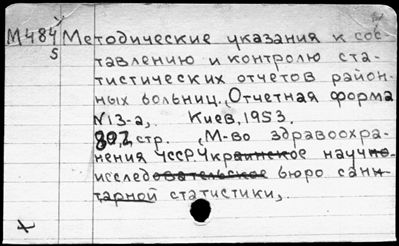 М484 Методические указания к сос-
5 тавлению и контролю ста-
тистических отчетов район-
ных больниц. (Отчетная форма
N13-а). Киев, 1953.
стр. (М-во здравоохра-
нения УССР. Украинское научно-
исследовательское бюро сани-
тарной статистики).